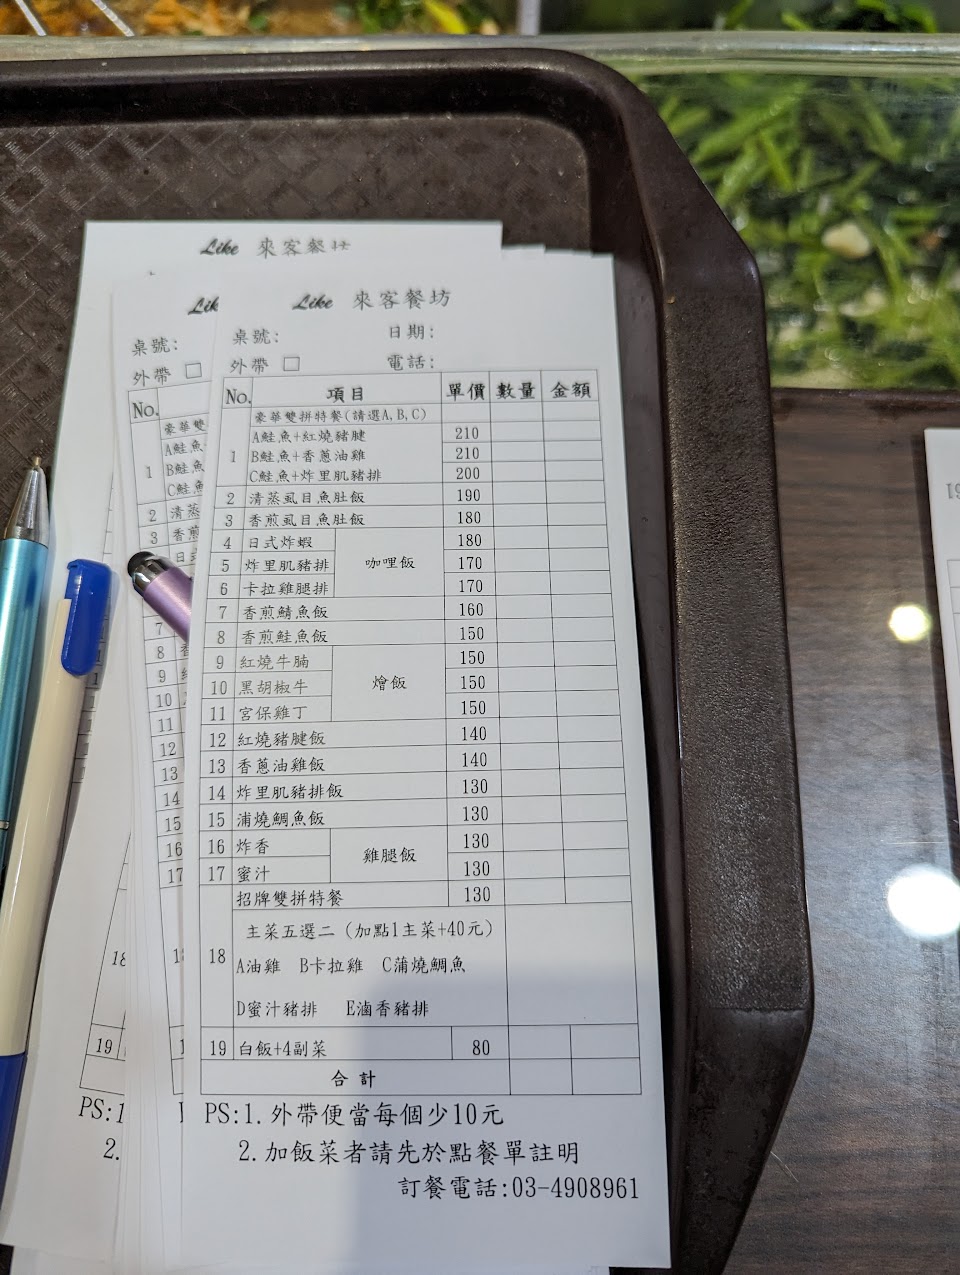 Like 來客餐
Like 來客餐坊
桌號: 日期:
外帶 □ 電話:
No. 項目 單價 數量 金額
豪華雙拼特餐(請選A,B,C)
1 A鮭魚+紅燒豬腱 210
B鮭魚+香蔥油雞 210
C鮭魚+炸里肌豬排 200
2 清蒸虱目魚肚飯 190
3 香煎虱目魚肚飯 180
4 日式炸蝦 咖哩飯 180
5 炸里肌豬排 170
6 卡拉雞腿排 170
7 香煎鯖魚飯 160
8 香煎鮭魚飯 150
9 紅燒牛腩 燴飯 150
10 黑胡椒牛 150
11 宮保雞丁 150
12 紅燒豬腱飯 140
13 香蔥油雞飯 140
14 炸里肌豬排飯 130
15 浦燒鯛魚飯 130
16 炸香 雞腿飯 130
17 蜜汁 130
18 招牌雙拼特餐 130
主菜五選二(加點1主菜+40元)
A油雞 B卡拉雞 C蒲燒鯛魚
D蜜汁豬排 E滷香豬排
19 白飯+4副菜 80
合計
PS:1.外帶便當每個少10元
2.加飯菜者請先於點餐單註明
訂餐電話:03-4908961